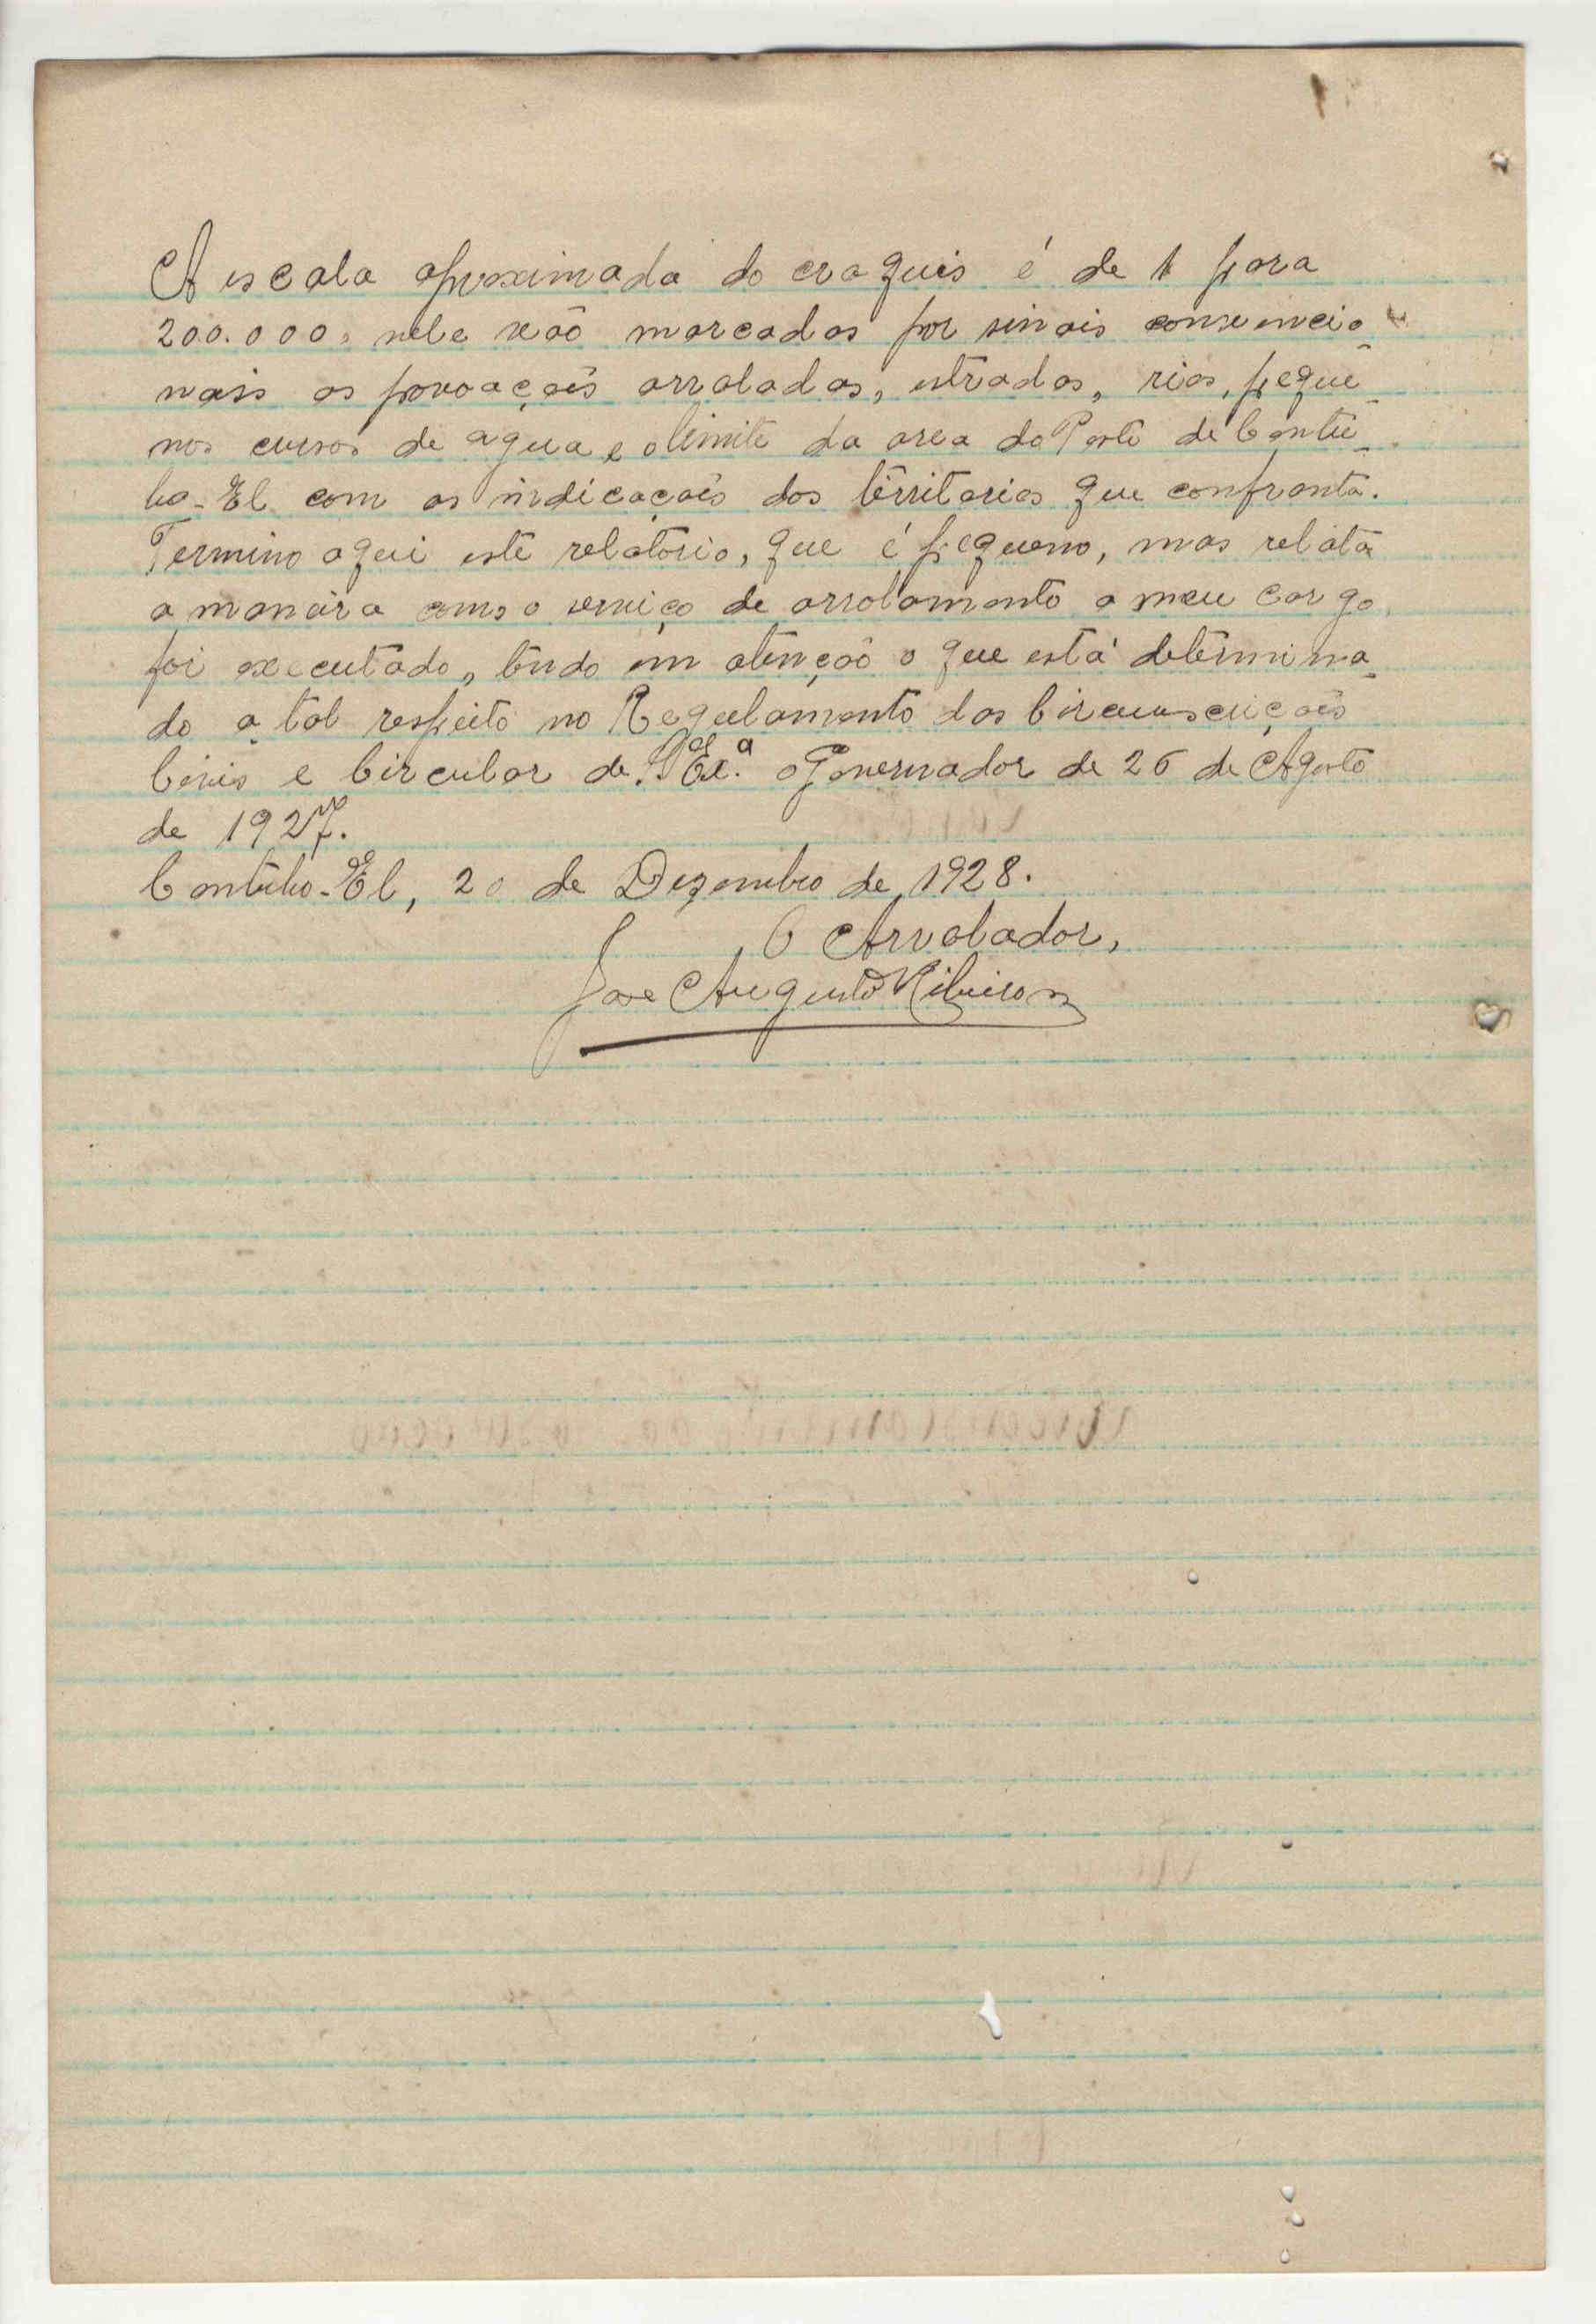 A escala aproximada do craquis é de 1 para
200.000, nele vão marcadas por sinais convencio-
nais as povoações arroladas, estradas, rios, peque-
nos cursos de agua e o limite da area do Posto de Contú-
bo-El com as indicações dos territorios que confronta.
Termino aqui este relatório, que é pequeno, mas relata
a maneira como o serviço de arrolamento a meu cargo
foi executado, tendo em atenção o que está determina-
do a tal respeito no Regulamento das Circunscrições
Civis e Circular de S. Exª. o Governador de 26 de Agosto
de 1927.
Contubo-El, 20 de Dezembro de 1928.
O Arrolador,
José Augusto Ribeiro